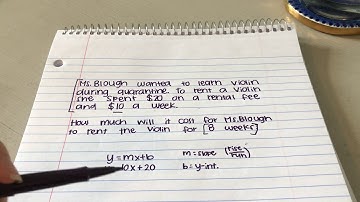 Ms. Blough wanted to learn violin
during quarantine. To rent a violin
she spent $20 on a rental fee
and $10 a week.
How much will it cost for Ms. Blough
to rent the violin for [8 weeks]
y=mx+b m=slope (rise/run)
10x+20 b=y-int.